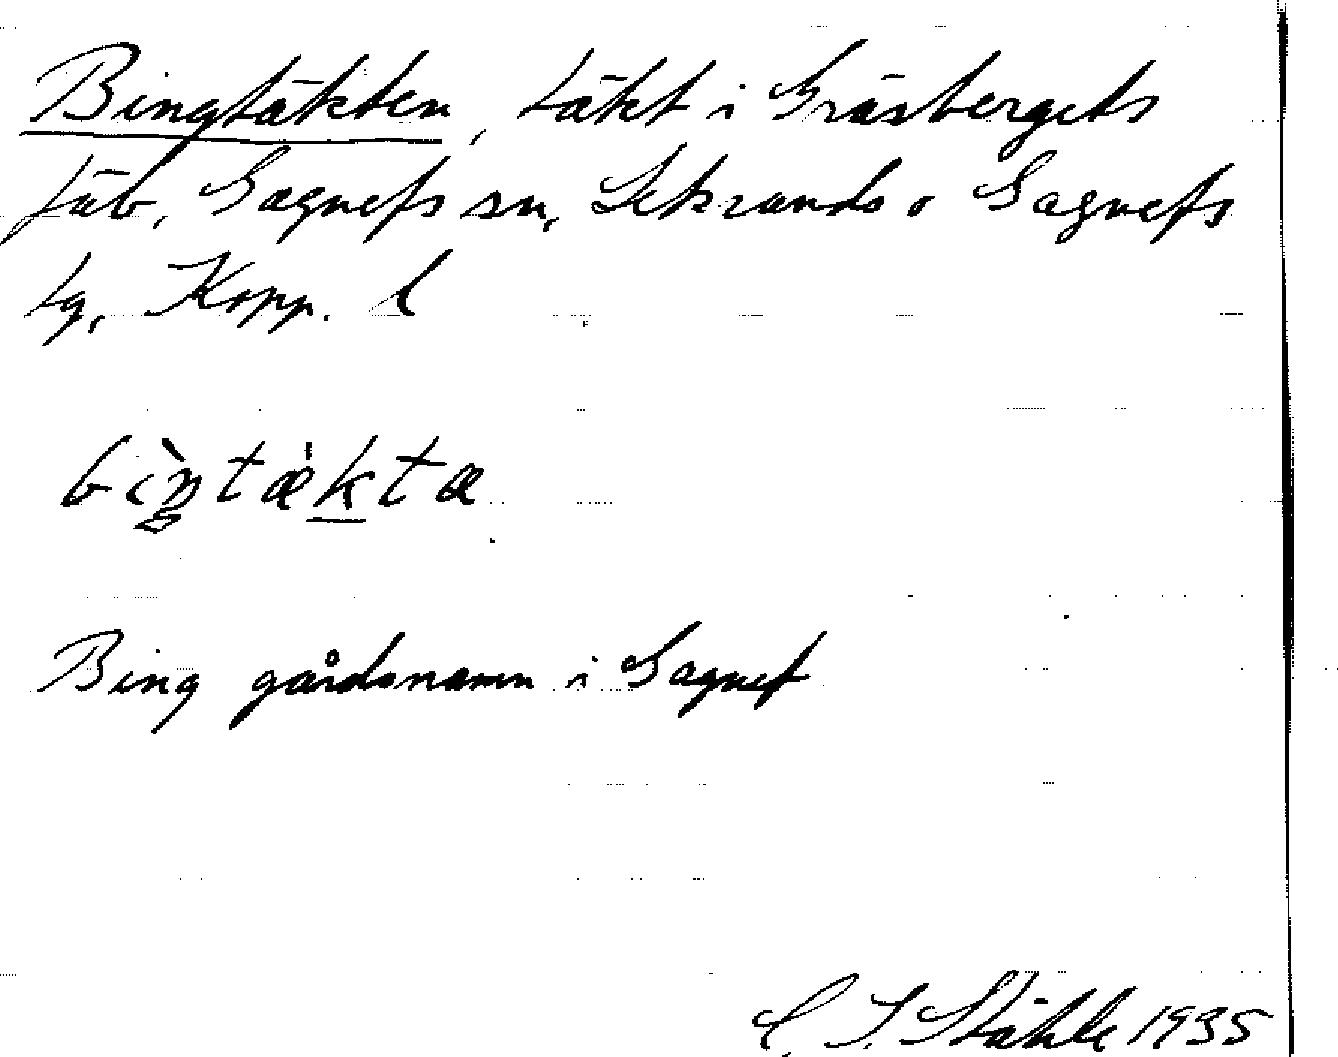 Bingtäkten, täkt i Gräsbergets
fäb, Gagnefs sn, Leksands o Gagnefs
tg, Kopp. l
bìŋtækta
Bing gårdsnamn i Gagnef
C. I. Ståhle 1935